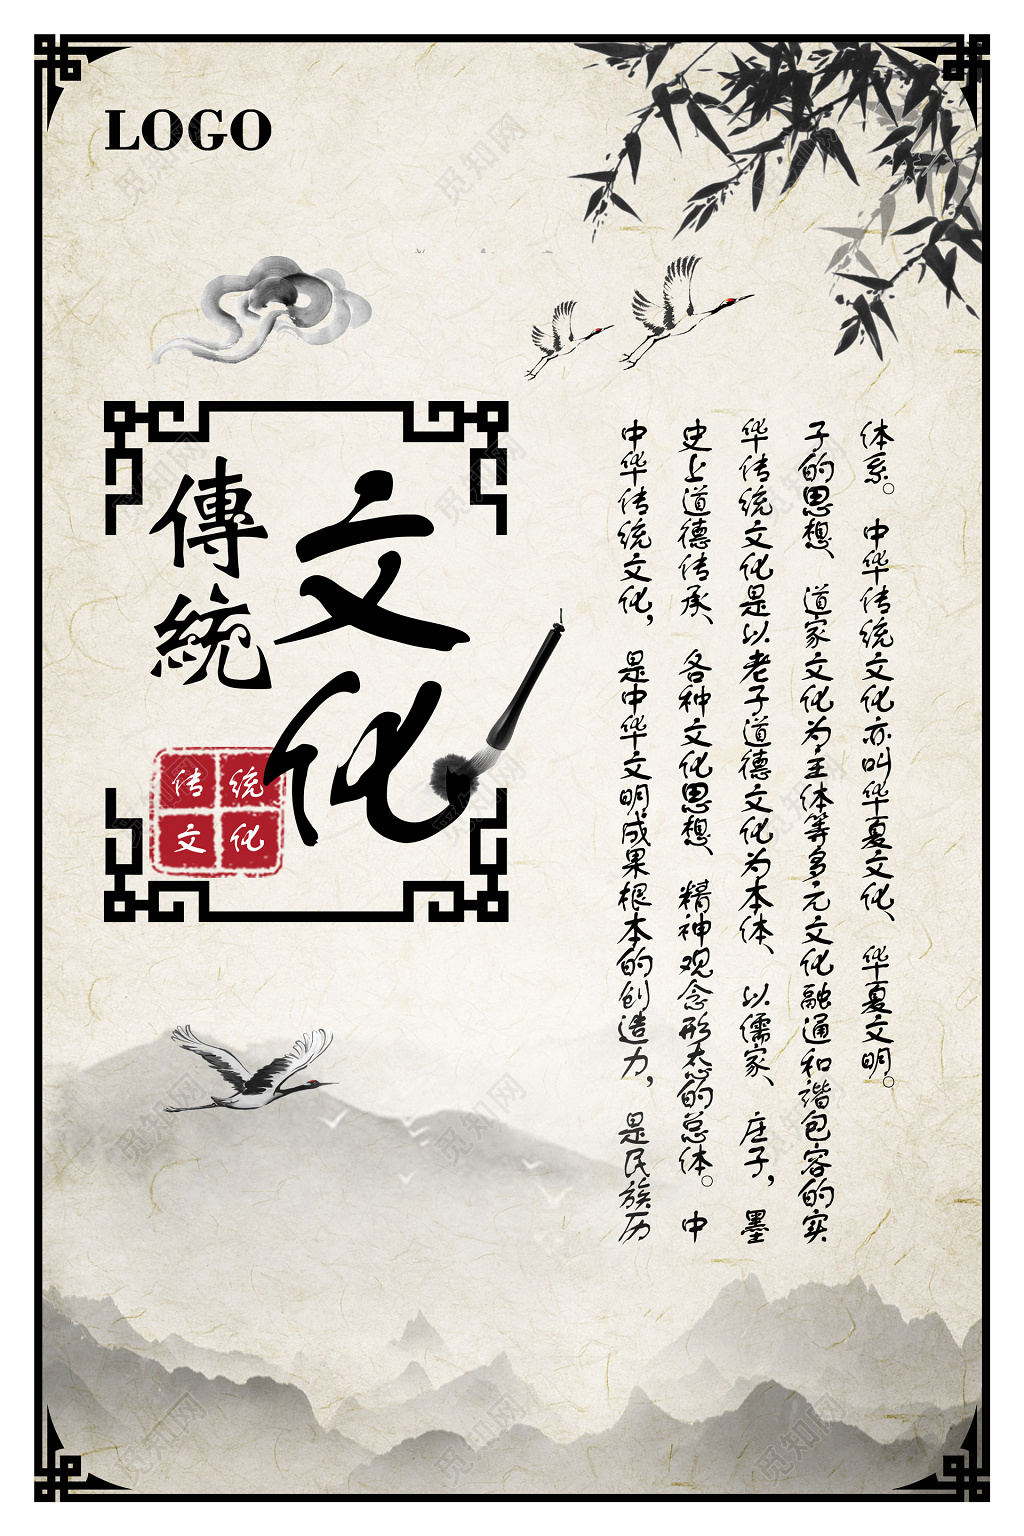 LOGO
傳統
文化
传统
文化
中华传统文化，是中华文明成果根本的创造力，是民族历
史上道德传承、各种文化思想、精神观念形态的总体。中
华传统文化是以老子道德文化为本体、以儒家、庄子，墨
子的思想、道家文化为主体等多元文化融通和谐包容的实
体系。中华传统文化亦叫华夏文化、华夏文明。
觅知网